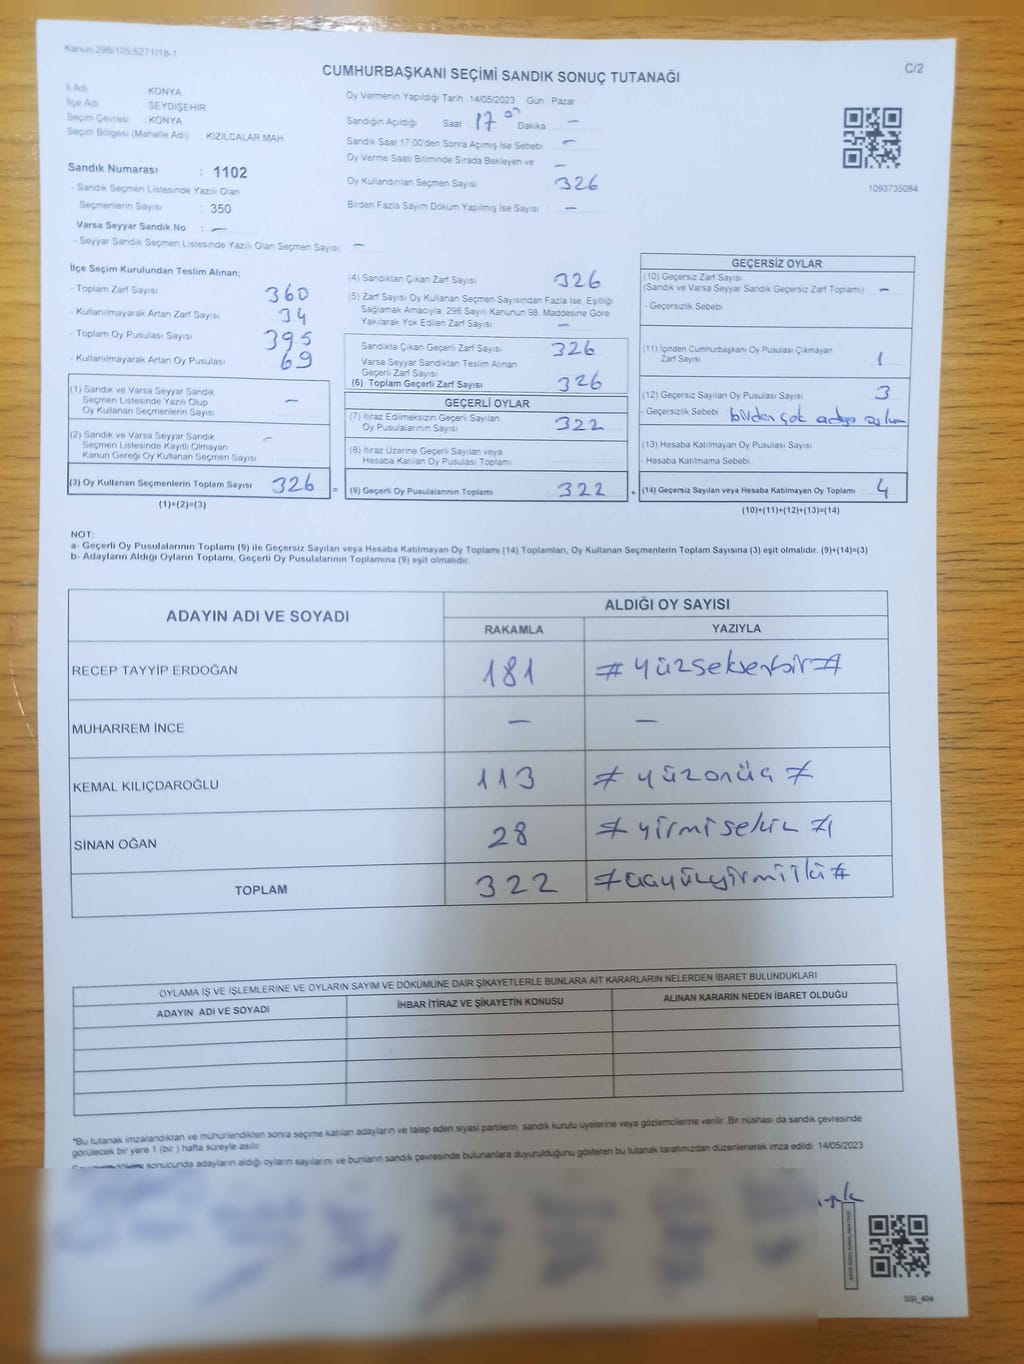 Kanun:298/105;6271/18-1
C/2
CUMHURBAŞKANI SEÇİMİ SANDIK SONUÇ TUTANAĞI
İl Adı KONYA
İlçe Adı SEYDİŞEHİR
Seçim Çevresi : KONYA
Seçim Bölgesi (Mahalle Adı) : KIZILCALAR MAH.
Sandık Numarası : 1102
- Sandık Seçmen Listesinde Yazılı Olan
Seçmenlerin Sayısı : 350
Varsa Seyyar Sandık No : —
- Seyyar Sandık Seçmen Listesinde Yazılı Olan Seçmen Sayısı —
Oy Vermenin Yapıldığı Tarih 14/05/2023 Gün : Pazar
Sandığın Açıldığı Saat 17 Dakika —
Sandık Saat 17:00'den Sonra Açılmış İse Sebebi —
Oy Verme Saati Bitiminde Sırada Bekleyen ve —
Oy Kullandırılan Seçmen Sayısı 326
Birden Fazla Sayım Döküm Yapılmış İse Sayısı —
1093735084
İlçe Seçim Kurulundan Teslim Alınan;
- Toplam Zarf Sayısı 360
- Kullanılmayarak Artan Zarf Sayısı 34
- Toplam Oy Pusulası Sayısı 395
- Kullanılmayarak Artan Oy Pusulası 69
(1) Sandık ve Varsa Seyyar Sandık
Seçmen Listesinde Yazılı Olup
Oy Kullanan Seçmenlerin Sayısı —
(2) Sandık ve Varsa Seyyar Sandık
Seçmen Listesinde Kayıtlı Olmayan
Kanun Gereği Oy Kullanan Seçmen Sayısı —
(3) Oy Kullanan Seçmenlerin Toplam Sayısı 326 =
(1)+(2)=(3)
(4) Sandıktan Çıkan Zarf Sayısı 326
(5) Zarf Sayısı Oy Kullanan Seçmen Sayısından Fazla İse, Eşitliği
Sağlamak Amacıyla, 298 Sayılı Kanunun 98. Maddesine Göre
Yakılarak Yok Edilen Zarf Sayısı —
Sandıkta Çıkan Geçerli Zarf Sayısı 326
Varsa Seyyar Sandıktan Teslim Alınan
Geçerli Zarf Sayısı
(6) Toplam Geçerli Zarf Sayısı 326
GEÇERLİ OYLAR
(7) İtiraz Edilmeksizin Geçerli Sayılan
Oy Pusulalarının Sayısı 322
(8) İtiraz Üzerine Geçerli Sayılan veya
Hesaba Katılan Oy Pusulası Toplamı
(9) Geçerli Oy Pusulalarının Toplamı 322 +
GEÇERSİZ OYLAR
(10) Geçersiz Zarf Sayısı
(Sandık ve Varsa Seyyar Sandık Geçersiz Zarf Toplamı) —
- Geçersizlik Sebebi
(11) İçinden Cumhurbaşkanı Oy Pusulası Çıkmayan
Zarf Sayısı 1
(12) Geçersiz Sayılan Oy Pusulası Sayısı 3
- Geçersizlik Sebebi birden çok adaya
(13) Hesaba Katılmayan Oy Pusulası Sayısı
- Hesaba Katılmama Sebebi
(14) Geçersiz Sayılan veya Hesaba Katılmayan Oy Toplamı 4
(10)+(11)+(12)+(13)=(14)
NOT:
a- Geçerli Oy Pusulalarının Toplamı (9) ile Geçersiz Sayılan veya Hesaba Katılmayan Oy Toplamı (14) Toplamları, Oy Kullanan Seçmenlerin Toplam Sayısına (3) eşit olmalıdır. (9)+(14)=(3)
b- Adayların Aldığı Oyların Toplamı, Geçerli Oy Pusulalarının Toplamına (9) eşit olmalıdır.
ADAYIN ADI VE SOYADI ALDIĞI OY SAYISI
RAKAMLA YAZIYLA
RECEP TAYYİP ERDOĞAN 181 #yüzseksenbir#
MUHARREM İNCE — —
KEMAL KILIÇDAROĞLU 113 #yüzonüç#
SİNAN OĞAN 28 #yirmisekiz#
TOPLAM 322 #üçyüzyirmiiki#
OYLAMA İŞ VE İŞLEMLERİNE VE OYLARIN SAYIM VE DÖKÜMÜNE DAİR ŞİKAYETLERLE BUNLARA AİT KARARLARIN NELERDEN İBARET BULUNDUKLARI
ADAYIN ADI VE SOYADI İHBAR İTİRAZ VE ŞİKAYETİN KONUSU ALINAN KARARIN NEDEN İBARET OLDUĞU
*Bu tutanak imzalandıktan ve mühürlendikten sonra seçime katılan adayların ve talep eden siyasi partilerin sandık kurulu üyelerine veya gözlemcilerine verilir. Bir nüshası da sandık çevresinde
görülecek bir yere 1 (bir) hafta süreyle asılır.
sonucunda adayların aldığı oyların sayılarını ve bunların sandık çevresinde bulunanlara duyurulduğunu gösteren bu tutanak tarafımızdan düzenlenerek imza edildi. 14/05/2023
SSI_404